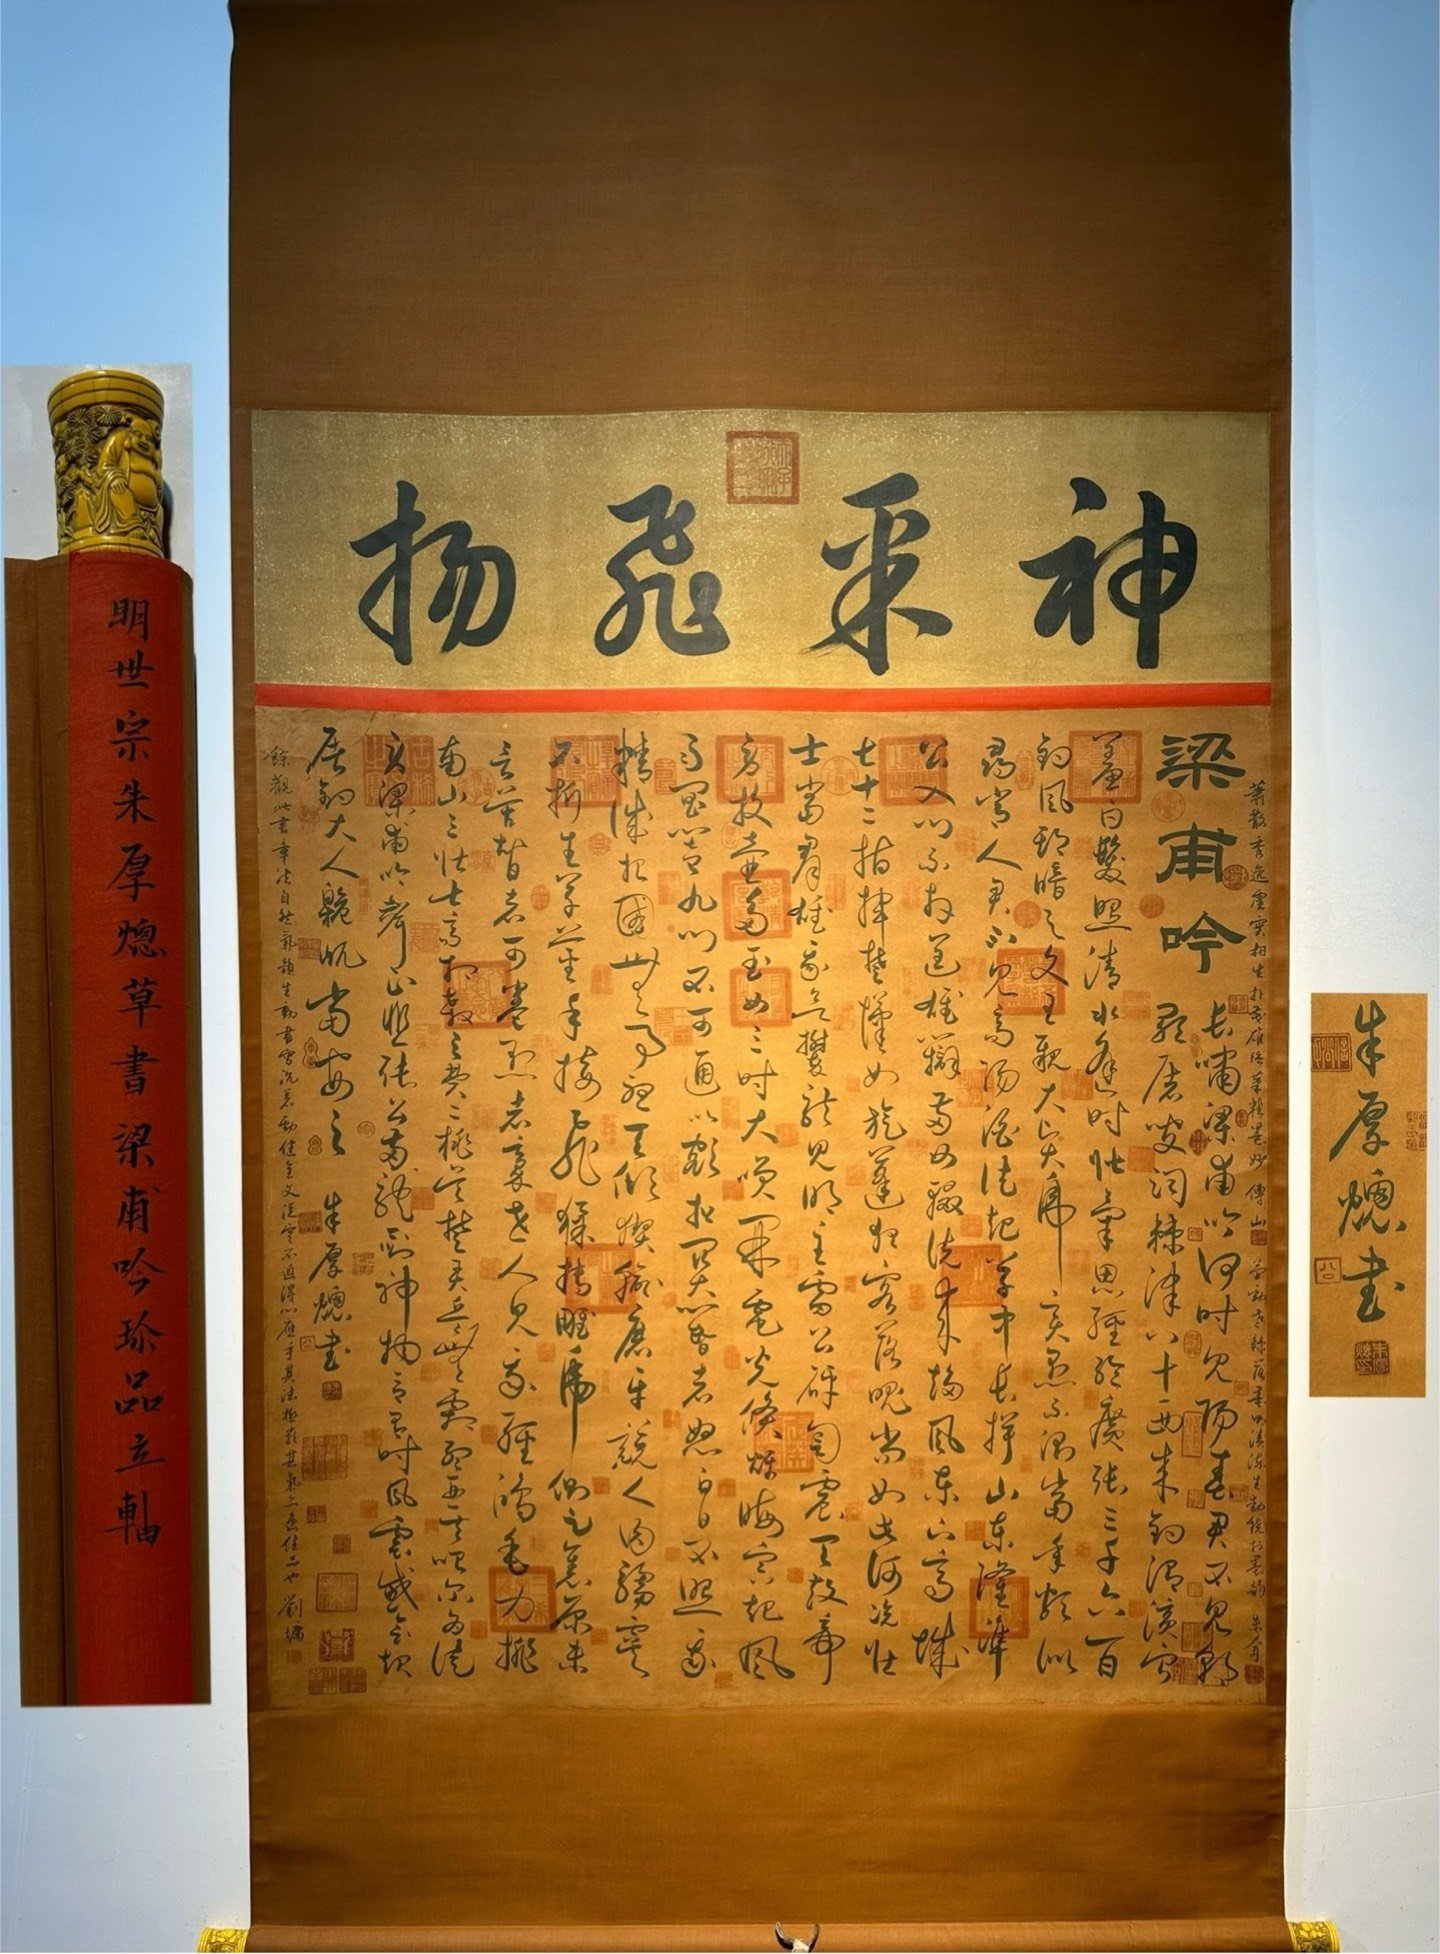 神采飛揚
蕭散秀逸虛實相生 筆精墨妙 傅山
梁甫吟
長嘯梁甫吟何時見陽春君不見朝
歌屠叟辭棘津八十西來釣渭濱寧
羞白髮照清水逢時壯氣思經綸廣張三千六百
釣風期暗與文王親大賢虎變愚不測當年頗似
尋常人君不見高陽酒徒起草中長揖山東隆準
公入門不拜逞雄辯兩女輟洗來趨風東下齊城
七十二指揮楚漢如旋蓬狂客落魄尚如此何況壯
士當群雄我欲攀龍見明主雷公砰訇震天鼓帝
旁投壺多玉女三時大笑開電光倏爍晦冥起風
雨閶闔九門不可通以額扣關閽者怒白日不照我
精誠杞國無事憂天傾猰貐磨牙競人肉騶虞
不折生草莖手接飛猱搏雕虎側足焦原未
言苦智者可卷愚者豪世人見我輕鴻毛力排
南山三壯士齊相殺之費二桃吳楚弄兵無劇孟亞夫咍爾為徒
勞梁甫吟聲正悲張公兩龍劍神物合有時風雲感會起
屠釣大人臲屼當安之 朱厚熜書
餘觀此書章法自然氣韻生動書寫沉著勁健全文從容不迫得心應手其法極嚴其氣亦逸佳品也 劉墉
明世宗朱厚熜草書梁甫吟珍品立軸
朱厚熜書